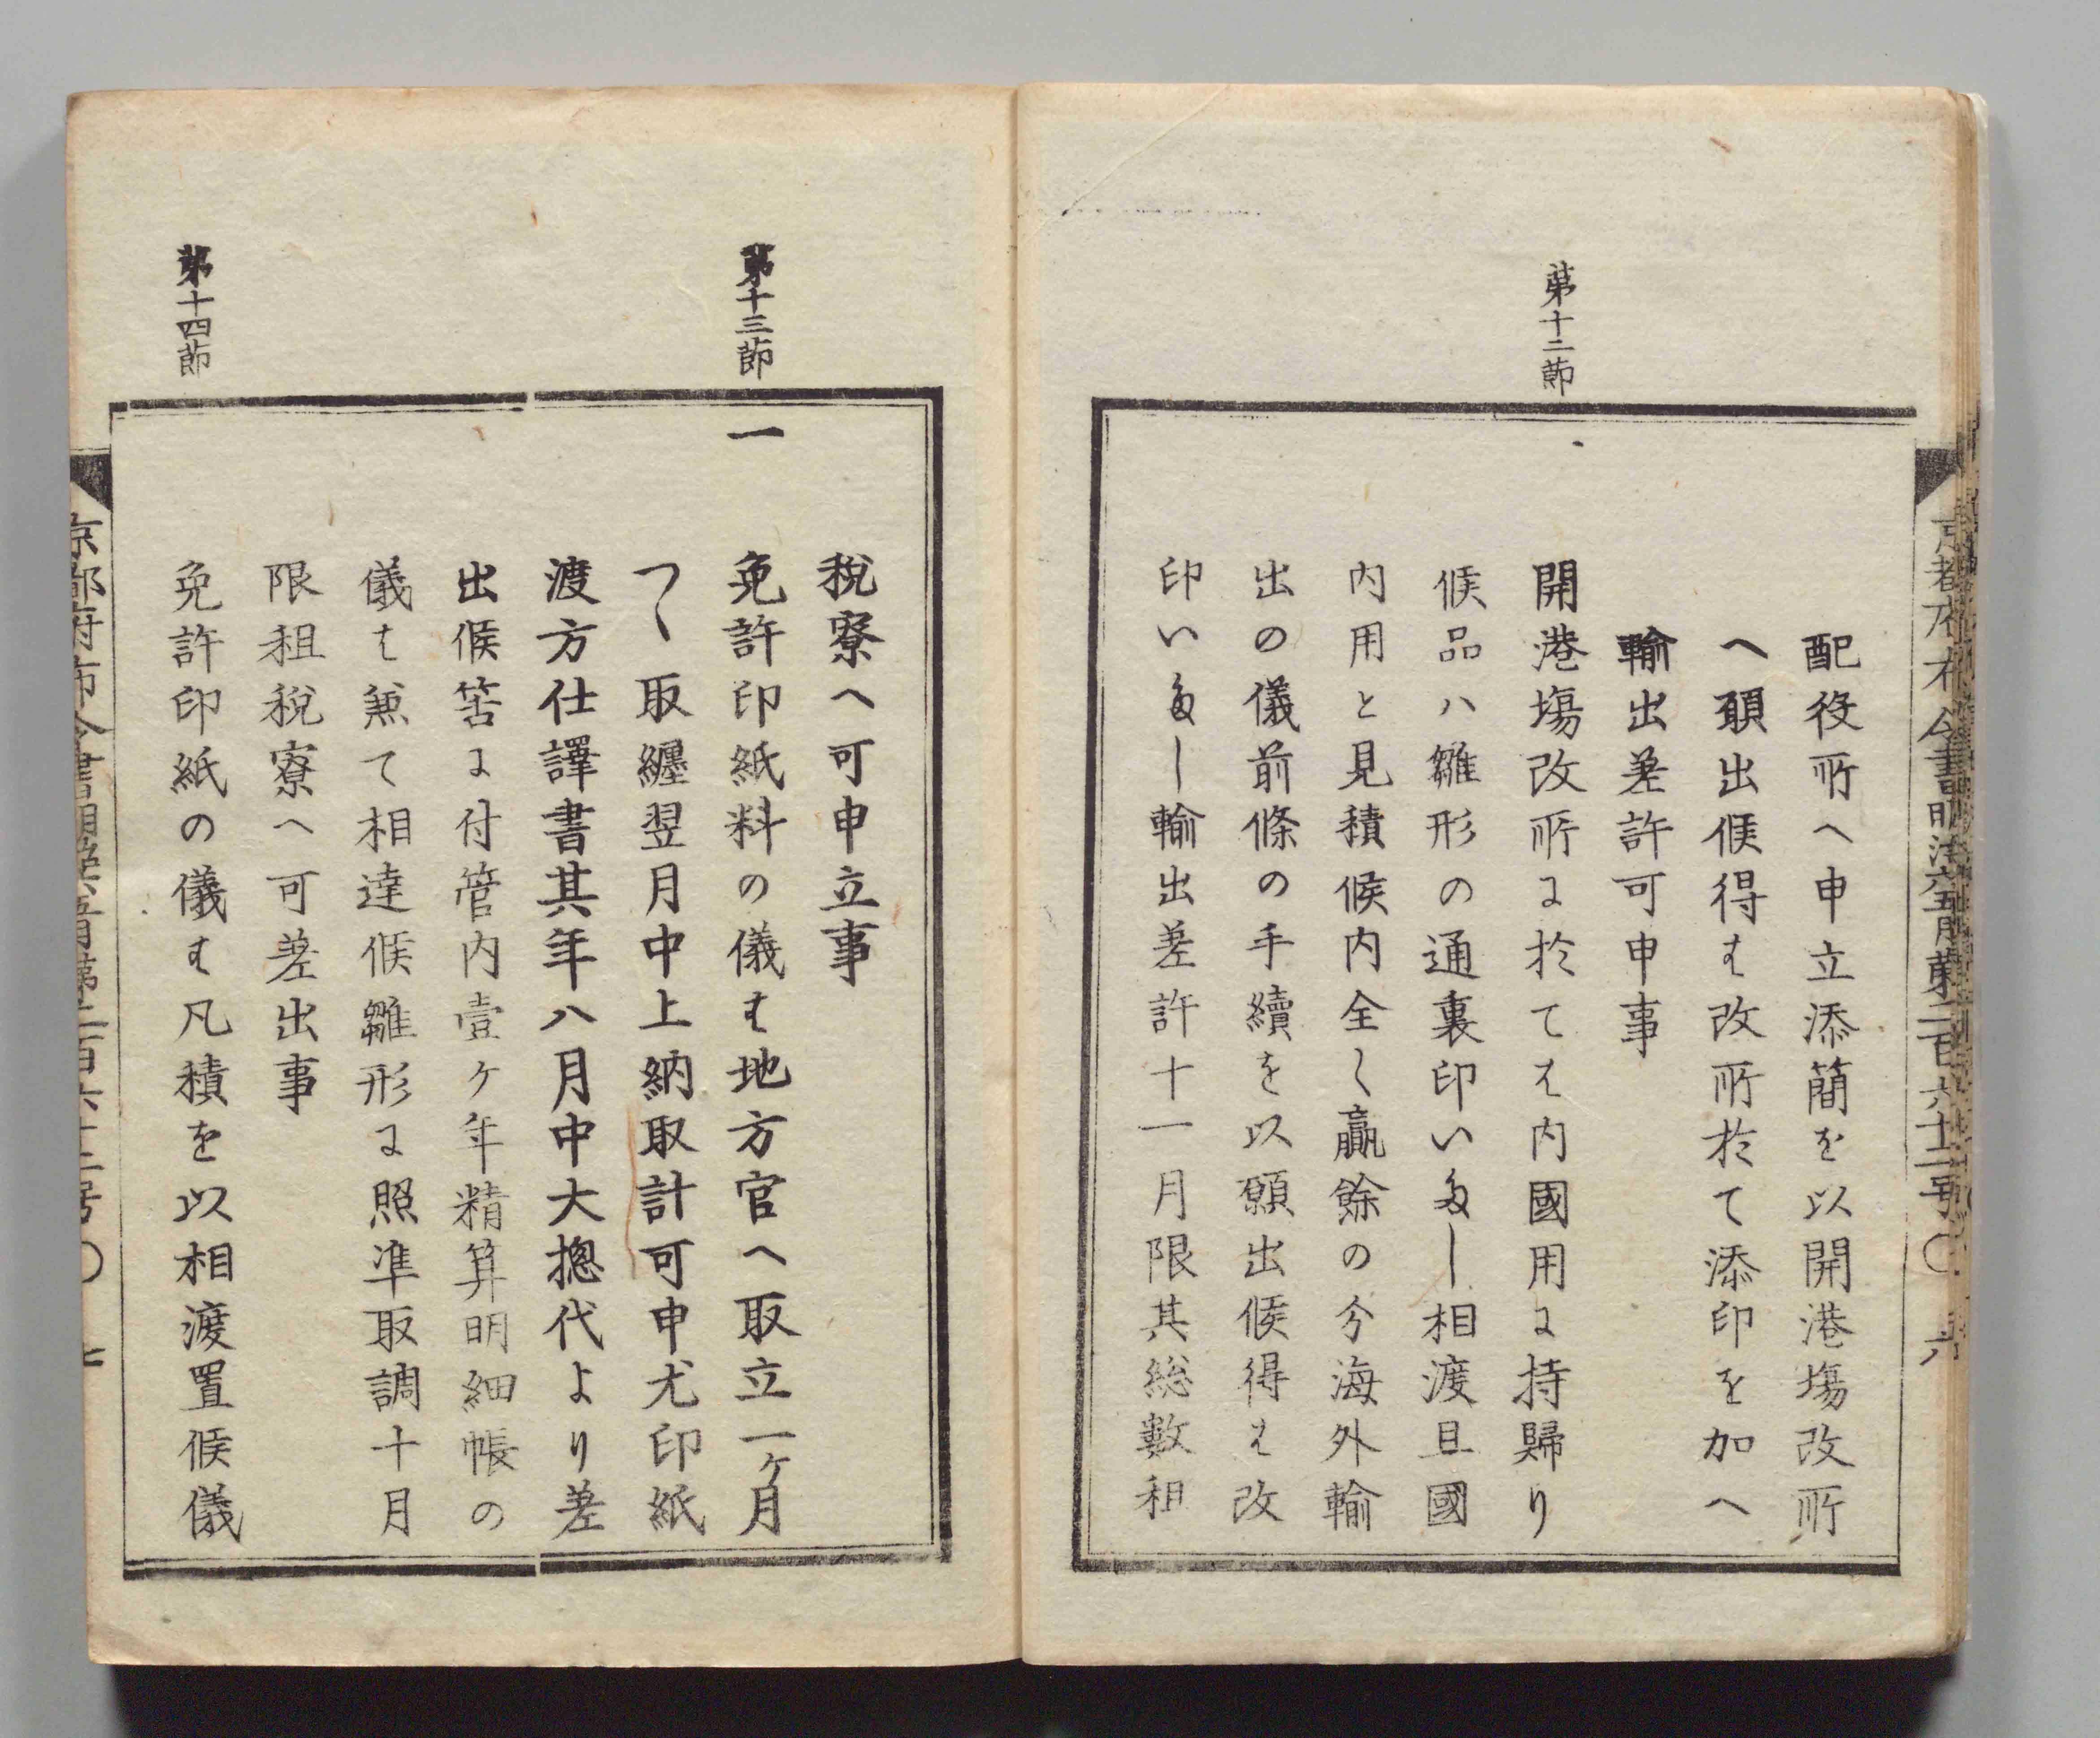 配役所へ申立添簡を以開港塲改所
へ願出候得は改所於て添印を加へ
輸出差許可申事
第十二節
開港塲改所に於ては内國用に持歸り
候品ハ雛形の通裏印いたし相渡且國
内用と見積候内全く贏餘の分海外輸
出の儀前條の手續を以願出候得は改
印いたし輸出差許十一月限其総數租
税寮へ可申立事
第十三節
一 免許印紙料の儀は地方官へ取立一ヶ月
つゝ取纒翌月中上納取計可申尤印紙
渡方仕譯書其年八月中大揔代より差
出候筈に付管内壹ヶ年精算明細帳の
儀は兼て相達候雛形に照凖取調十月
限租税寮へ可差出事
第十四節
免許印紙の儀は凡積を以相渡置候儀